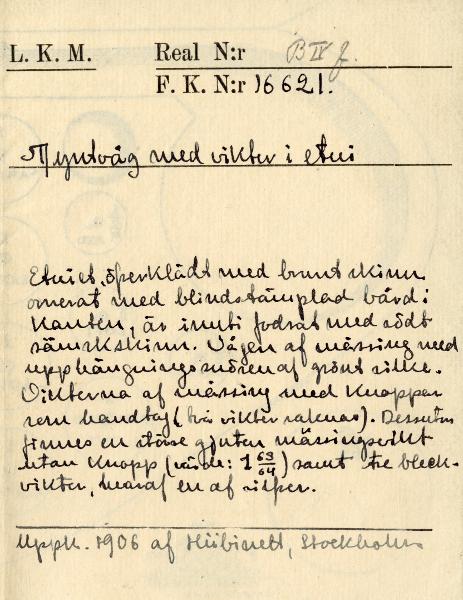 L. K. M. Real N:r B IV f.
F. K. N:r 16621.
Myntvåg med vikter i etui
Etuiet, överklädt med brunt skinn
ornerat med blindstämplad bård i
kanten, är inuti fodrat med rödt
sämskskinn. Vågen af mässing med
upphängningssnören af grönt silke.
Vikterna af mässing med knoppar
som handtag (två vikter saknas). Dessutom
finnes en större gjuten mässingsvikt
utan knopp (värde: 1 63/64) samt tre bleck-
vikter, hvaraf en af silfver.
Uppk. 1906 af Hübinett, Stockholm